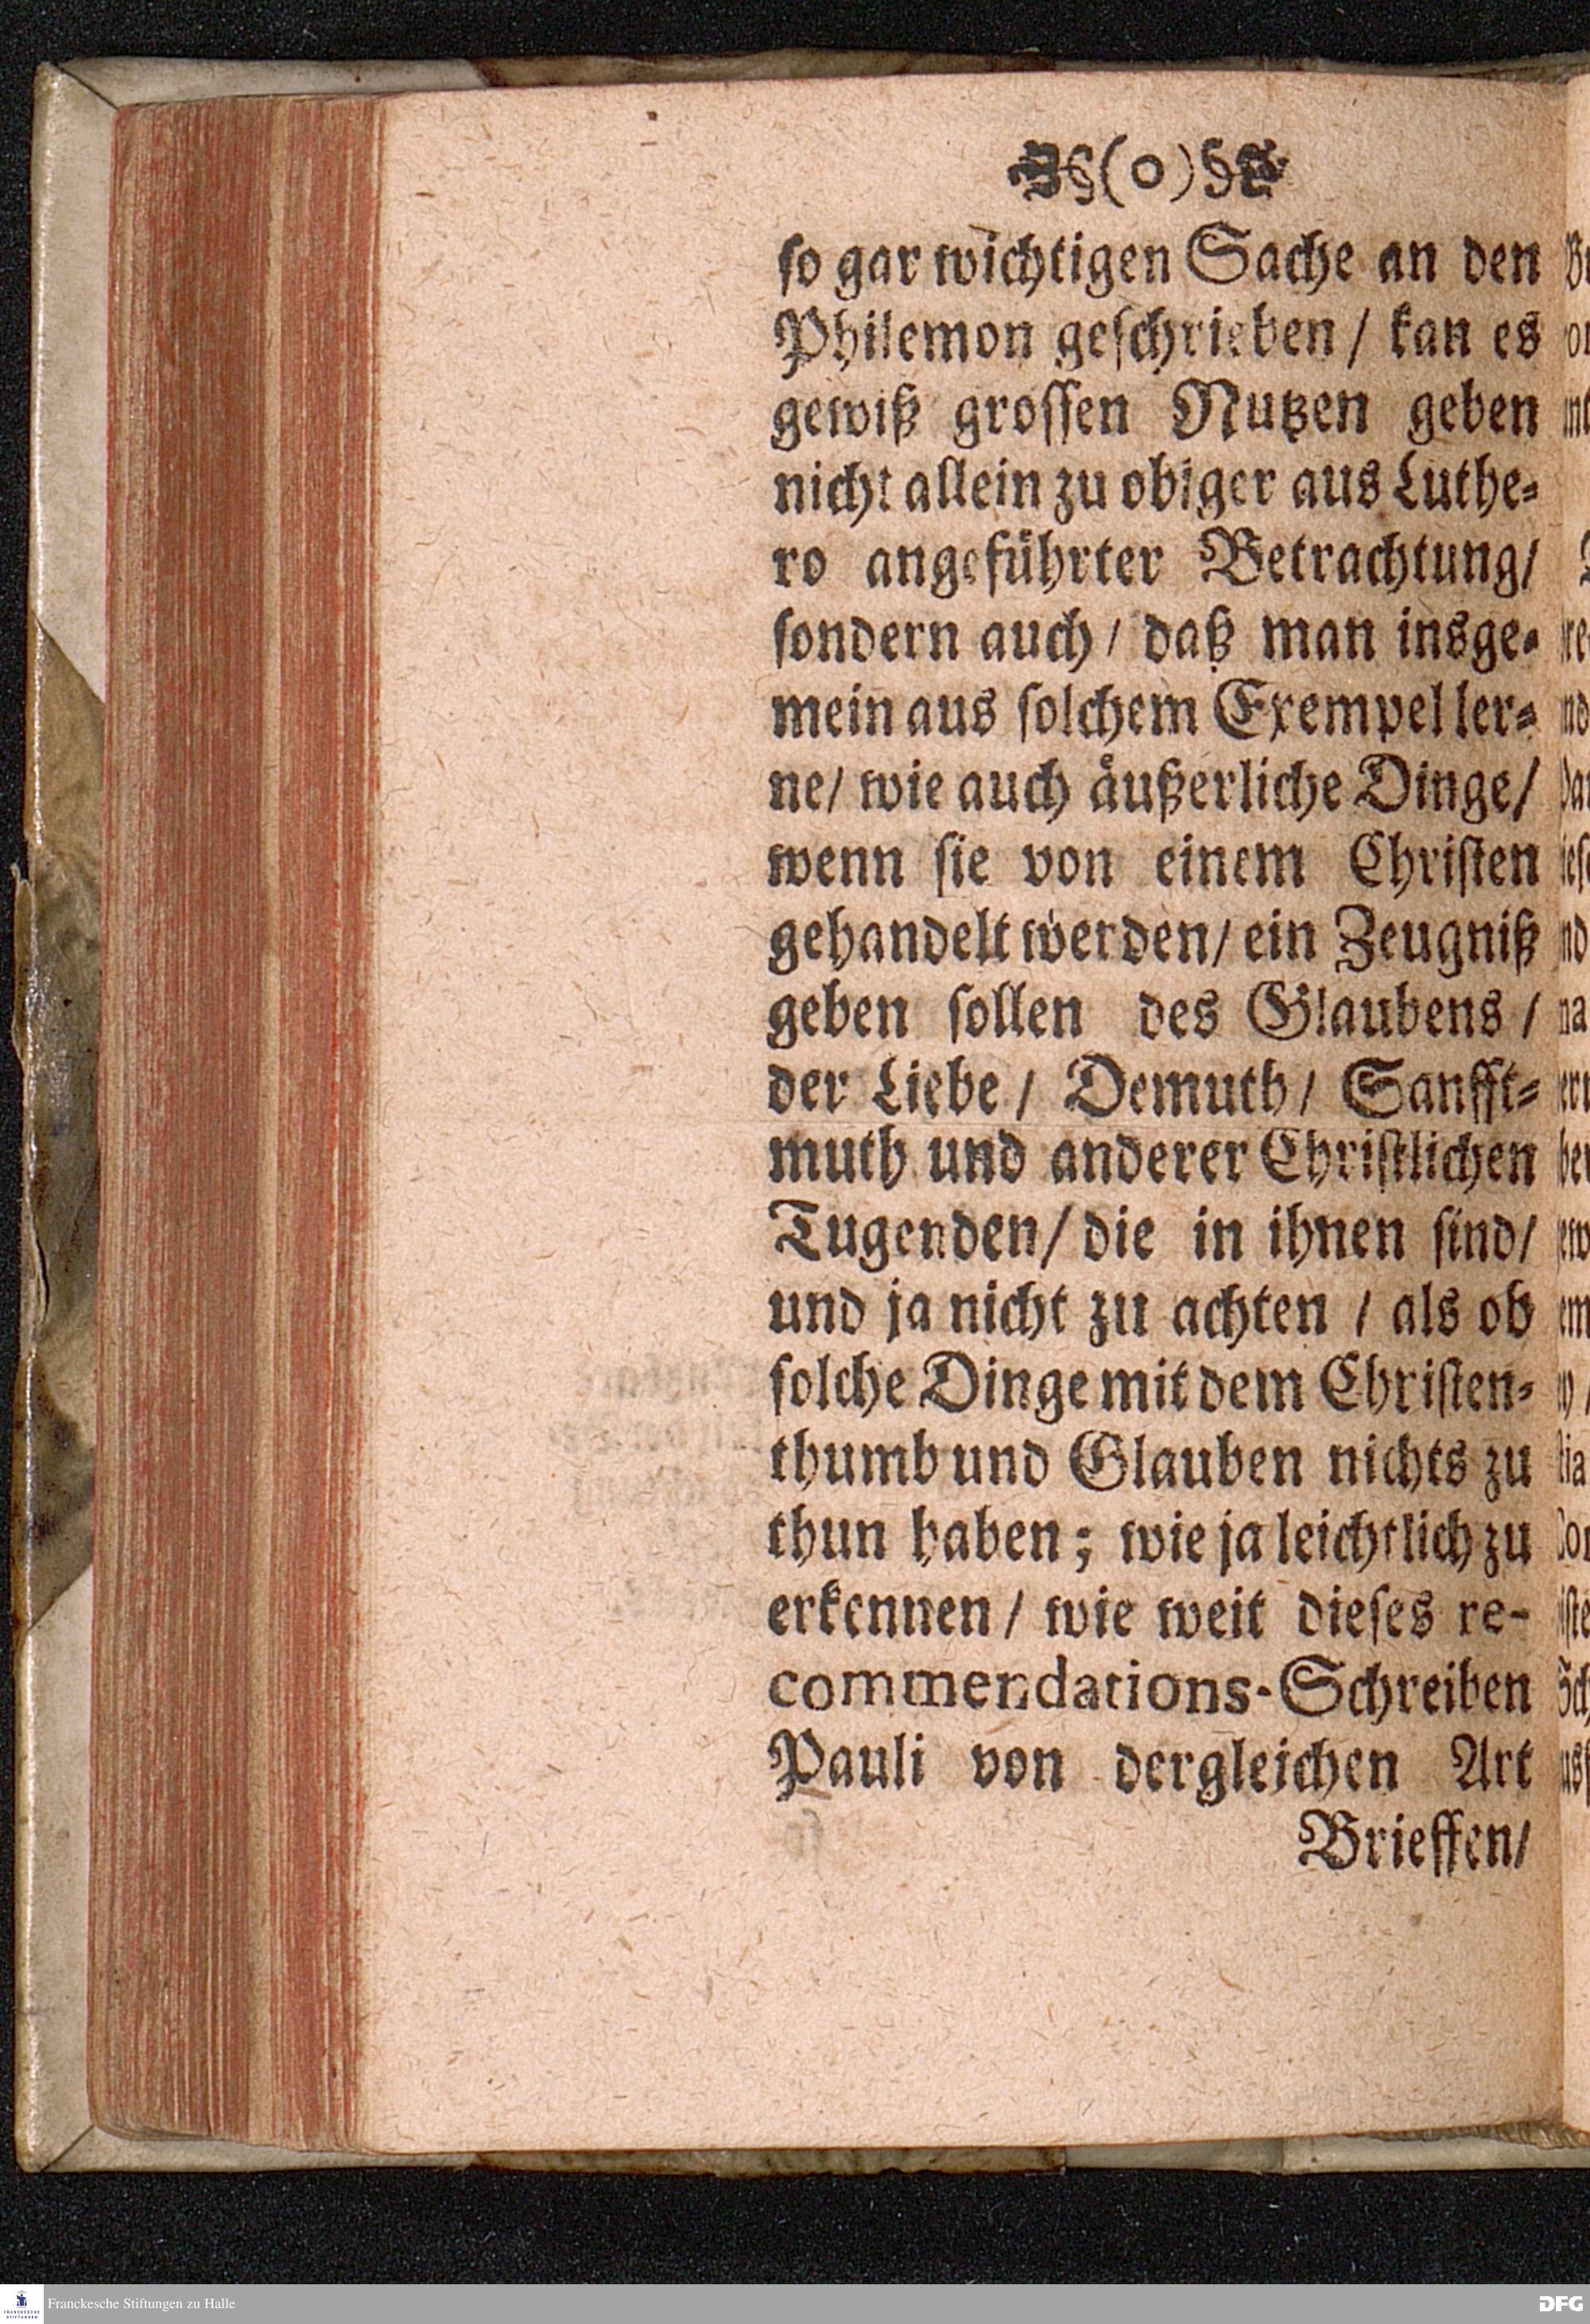 (o)
so gar wichtigen Sache an den
Philemon geschrieben / kan es
gewiß grossen Nutzen geben
nicht allein zu obiger aus Luthe-
ro angeführter Betrachtung/
sondern auch / daß man insge-
mein aus solchem Exempel ler-
ne/ wie auch äußerliche Dinge/
wenn sie von einem Christen
gehandelt werden/ ein Zeugniß
geben sollen des Glaubens /
der Liebe / Demuth / Sanfft-
muth und anderer Christlichen
Tugenden/ die in ihnen sind/
und ja nicht zu achten / als ob
solche Dinge mit dem Christen-
thumb und Glauben nichts zu
thun haben; wie ja leichtlich zu
erkennen / wie weit dieses re-
commendations-Schreiben
Pauli von dergleichen Art
Brieffen/
FRANCKESCHE STIFTUNGEN
Franckesche Stiftungen zu Halle
DFG